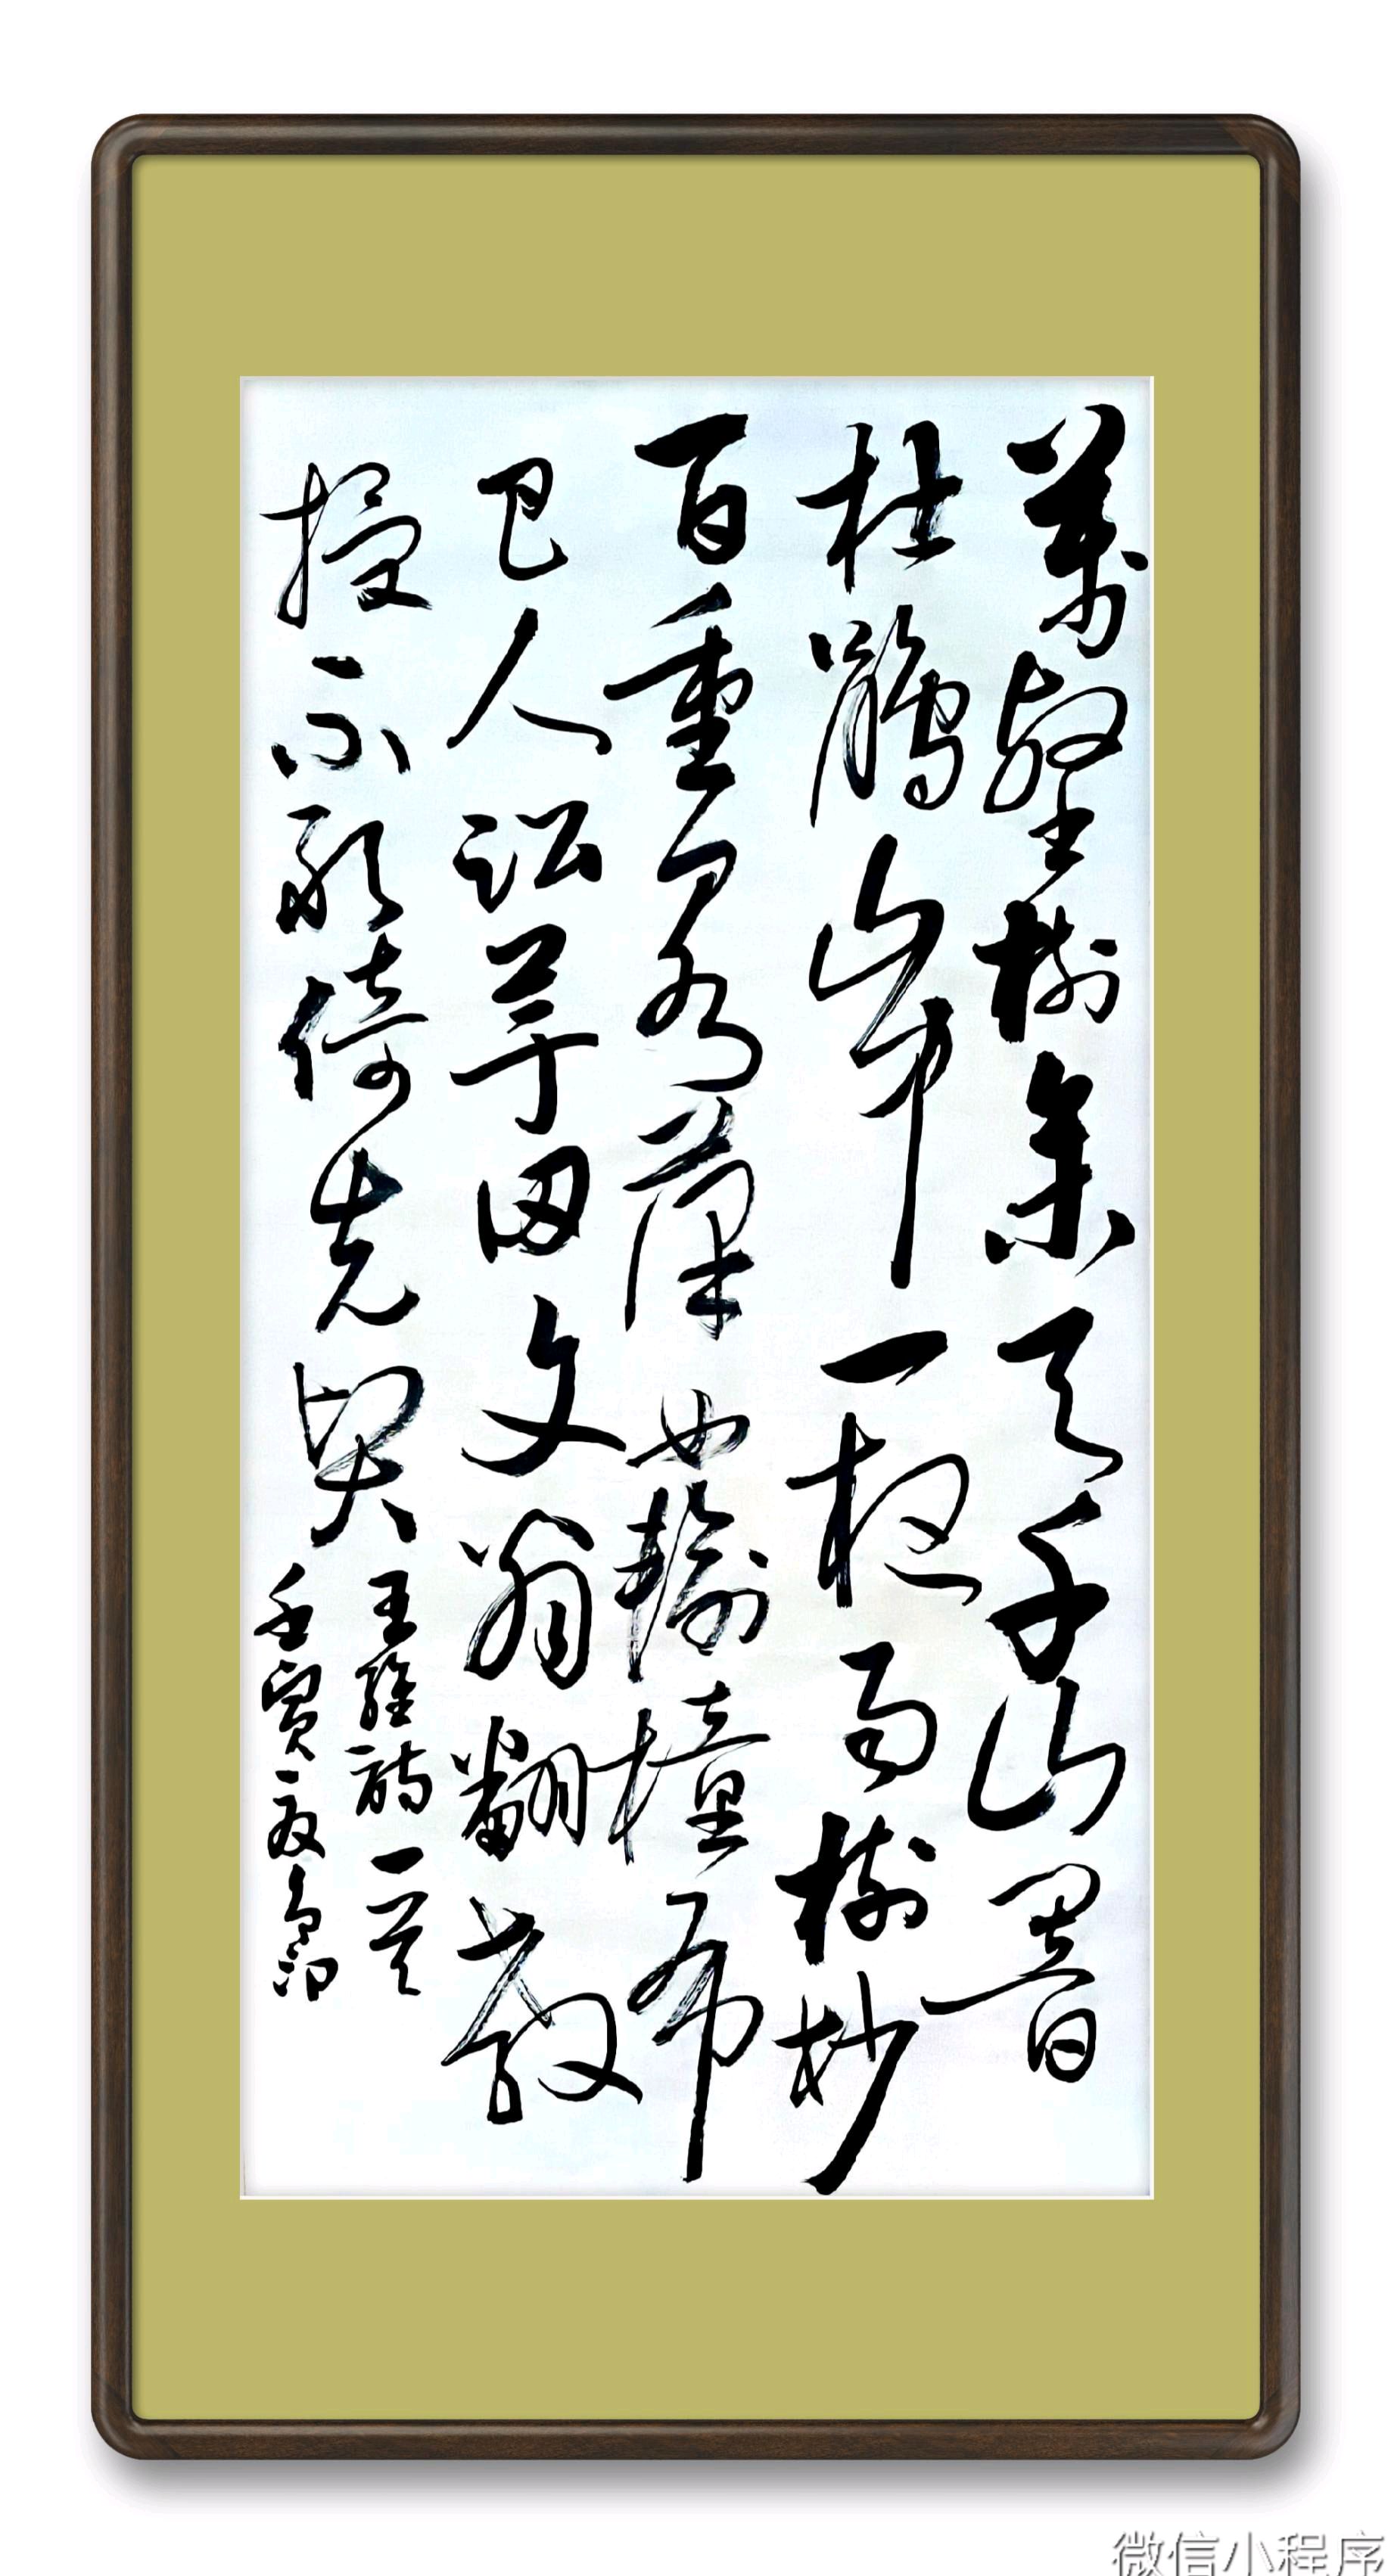 萬壑樹參天千山響
杜鵑山中一夜雨樹杪
百重泉漢女輸橦布
巴人訟芋田文翁翻教
授不敢倚先賢
王維詩一首
壬寅夏
微信小程序